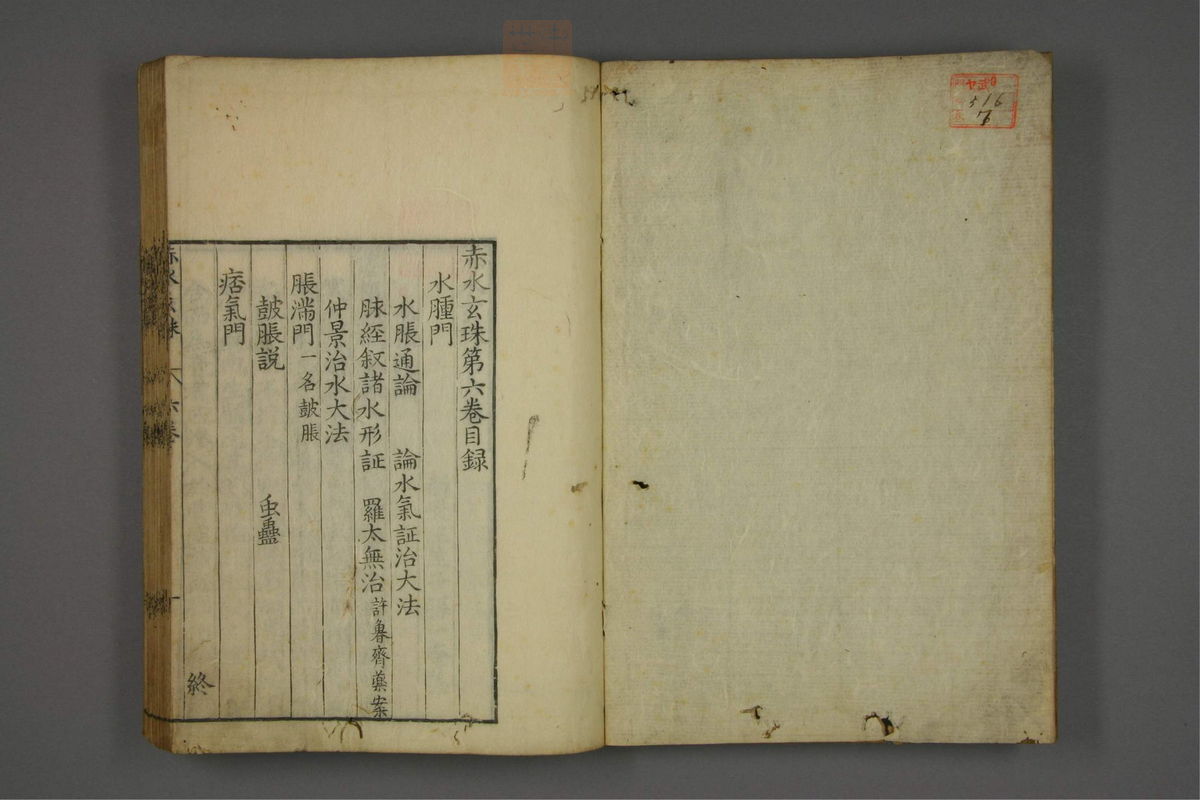 赤水玄珠第六卷目録
水腫門
水脹通論　論水氣証治大法
脉経叙諸水形証　羅太無治許魯齊藥案
仲景治水大法
脹滿門一名鼓脹
鼓脹説　虫蠱
痞氣門
終
赤水玄珠　六卷　一
516
7